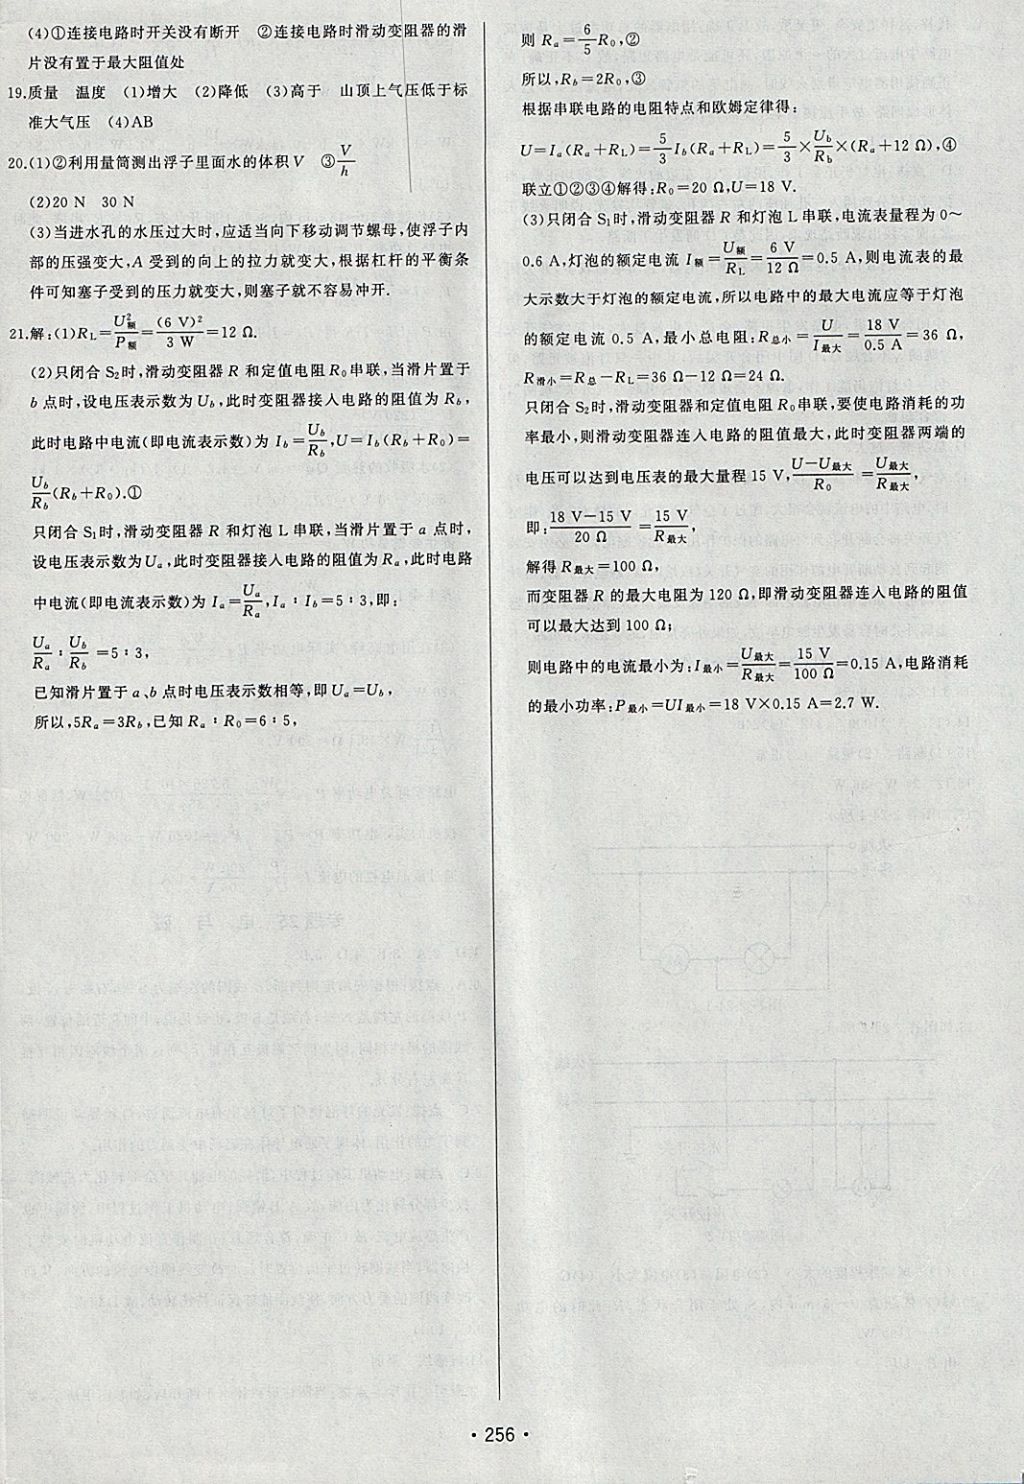 (4)①连接电路时开关没有断开　②连接电路时滑动变阻器的滑
片没有置于最大阻值处
19.质量　温度　(1)增大　(2)降低　(3)高于　山顶上气压低于标
准大气压　(4)AB
20.(1)②利用量筒测出浮子里面水的体积V　③V/h
(2)20 N　30 N
(3)当进水孔的水压过大时,应适当向下移动调节螺母,使浮子内
部的压强变大,A 受到的向上的拉力就变大,根据杠杆的平衡条
件可知塞子受到的压力就变大,则塞子就不容易冲开.
21.解:(1)R_L=U²额/P额=(6 V)²/3 W=12 Ω.
(2)只闭合 S₂时,滑动变阻器 R 和定值电阻 R₀串联,当滑片置于
b 点时,设电压表示数为 U_b,此时变阻器接入电路的阻值为 R_b,
此时电路中电流(即电流表示数)为 I_b=U_b/R_b,U=I_b(R_b+R₀)=
U_b/R_b(R_b+R₀).①
只闭合 S₁时,滑动变阻器 R 和灯泡 L 串联,当滑片置于 a 点时,
设电压表示数为U_a,此时变阻器接入电路的阻值为R_a,此时电路
中电流(即电流表示数)为 I_a=U_a/R_a,I_a∶I_b=5∶3,即:
U_a/R_a∶U_b/R_b=5∶3,
已知滑片置于 a、b 点时电压表示数相等,即 U_a=U_b,
所以,5R_a=3R_b,已知 R_a∶R₀=6∶5,
则 R_a=6/5R₀,②
所以,R_b=2R₀,③
根据串联电路的电阻特点和欧姆定律得:
U=I_a(R_a+R_L)=5/3I_b(R_a+R_L)=5/3×U_b/R_b×(R_a+12 Ω),④
联立①②③④解得:R₀=20 Ω,U=18 V.
(3)只闭合 S₁时,滑动变阻器 R 和灯泡 L 串联,电流表量程为 0～
0.6 A,灯泡的额定电流 I额=U额/R_L=6 V/12 Ω=0.5 A,则电流表的最
大示数大于灯泡的额定电流,所以电路中的最大电流应等于灯泡
的额定电流 0.5 A,最小总电阻:R总小=U/I最大=18 V/0.5 A=36 Ω,
R滑小=R总−R_L=36 Ω−12 Ω=24 Ω.
只闭合 S₂时,滑动变阻器和定值电阻 R₀串联,要使电路消耗的功
率最小,则滑动变阻器连入电路的阻值最大,此时变阻器两端的
电压可以达到电压表的最大量程 15 V,U−U最大/R₀=U最大/R最大,
即:18 V−15 V/20 Ω=15 V/R最大,
解得 R最大=100 Ω,
而变阻器 R 的最大电阻为 120 Ω,即滑动变阻器连入电路的阻值
可以最大达到 100 Ω;
则电路中的电流最小为:I最小=U最大/R最大=15 V/100 Ω=0.15 A,电路消耗
的最小功率:P最小=UI最小=18 V×0.15 A=2.7 W.
• 256 •